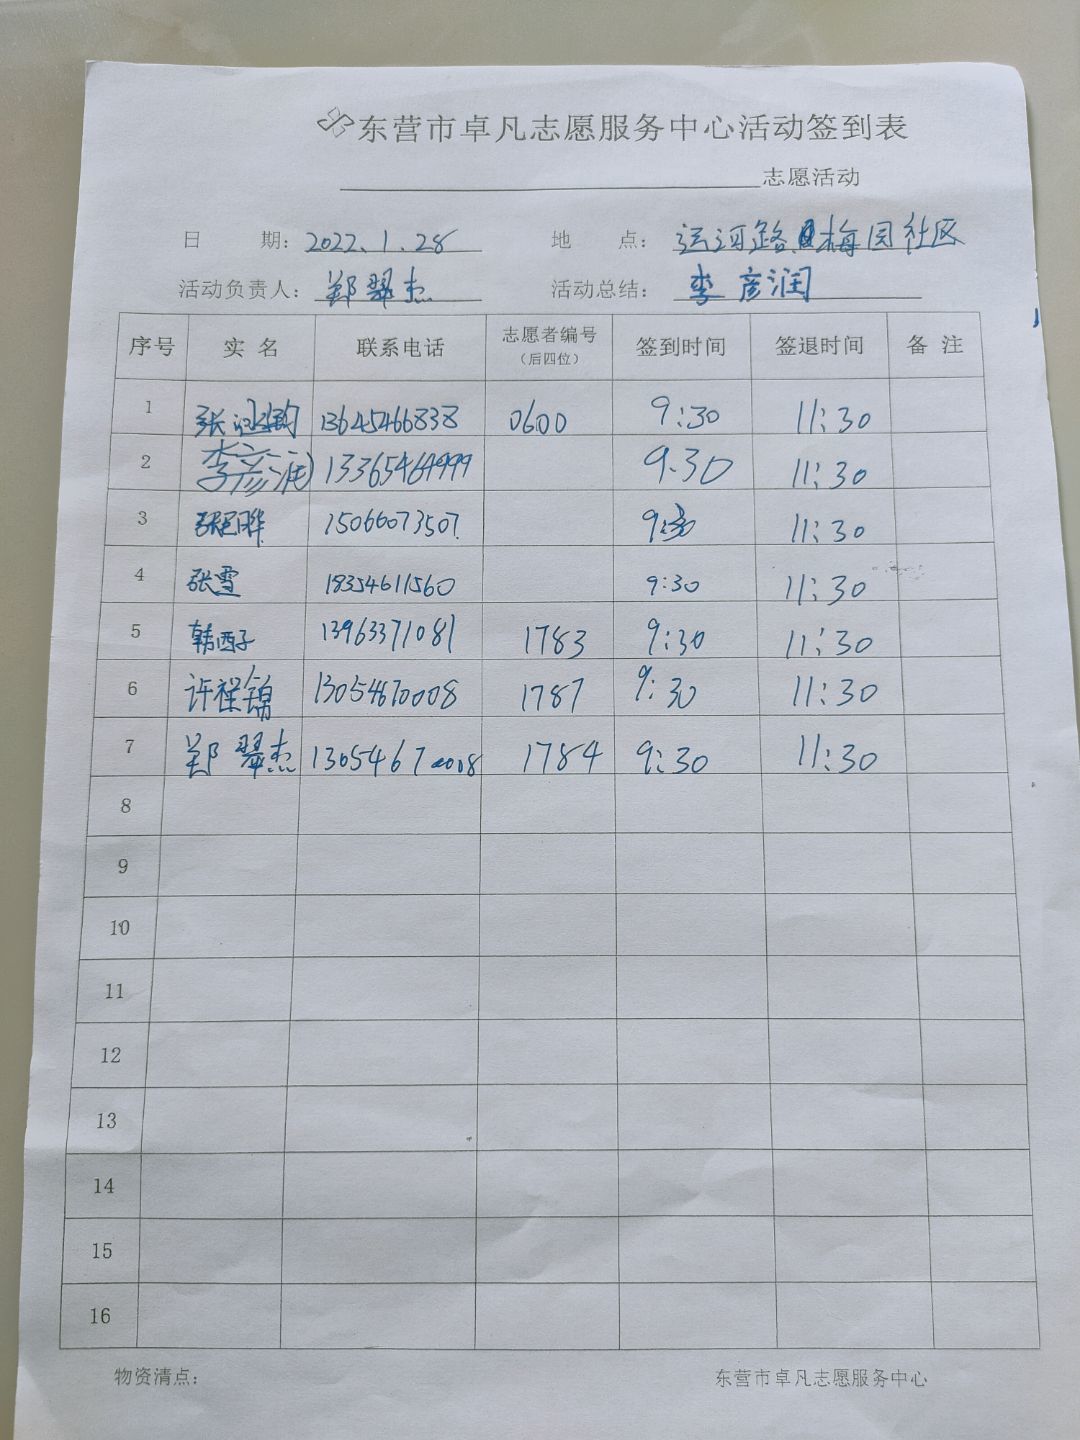 东营市卓凡志愿服务中心活动签到表
志愿活动
日 期: 2022.1.28 地 点: 运河路梅园社区
活动负责人: 郑翠杰 活动总结: 李彦润
序号 实名 联系电话 志愿者编号（后四位） 签到时间 签退时间 备注
1 张 13645466838 0600 9:30 11:30
2 李彦润 13365464999 9:30 11:30
3 15066073507 9:30 11:30
4 张雪 18354611560 9:30 11:30
5 韩西子 13963371081 1783 9:30 11:30
6 许程锦 13054670008 1787 9:30 11:30
7 郑翠杰 13054670008 1784 9:30 11:30
8
9
10
11
12
13
14
15
16
物资清点: 东营市卓凡志愿服务中心